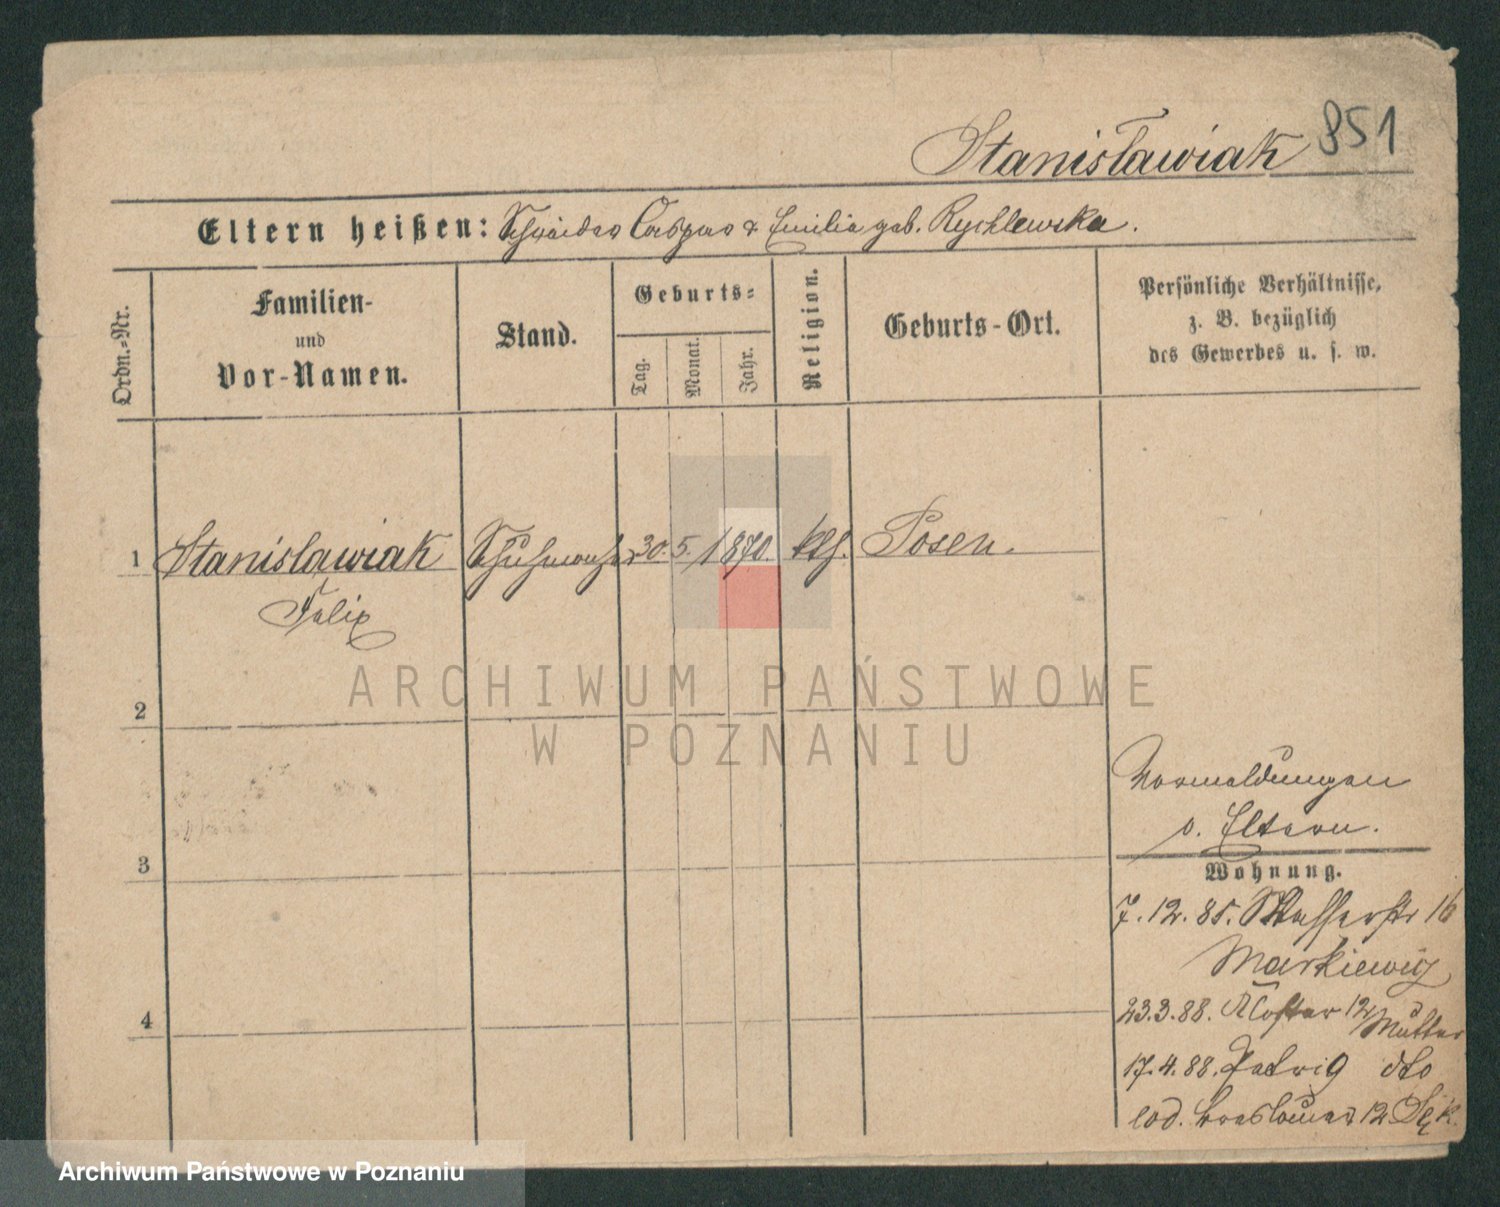 Stanisławiak 351
Eltern heißen: Schneider Caspar & Emilia geb. Rychlewska.
Ordn.-Nr.
Familien-
und
Vor-Namen.
Stand.
Geburts-
Tag.
Monat.
Jahr.
Religion.
Geburts-Ort.
Persönliche Verhältnisse,
z. B. bezüglich
des Gewerbes u. s. w.
1 Stanislawiak Schuhmacher 30. 5. 1870. kth. Posen.
Felix
ARCHIWUM PAŃSTWOWE
W POZNANIU
2
3
4
Vormeldungen
s. Eltern.
Wohnung.
7. 12. 85. Wasserstr 16
Markiewicz
23.3.88. Kloster 12 Mutter
17.4.88. dto
eod. 12
Archiwum Państwowe w Poznaniu